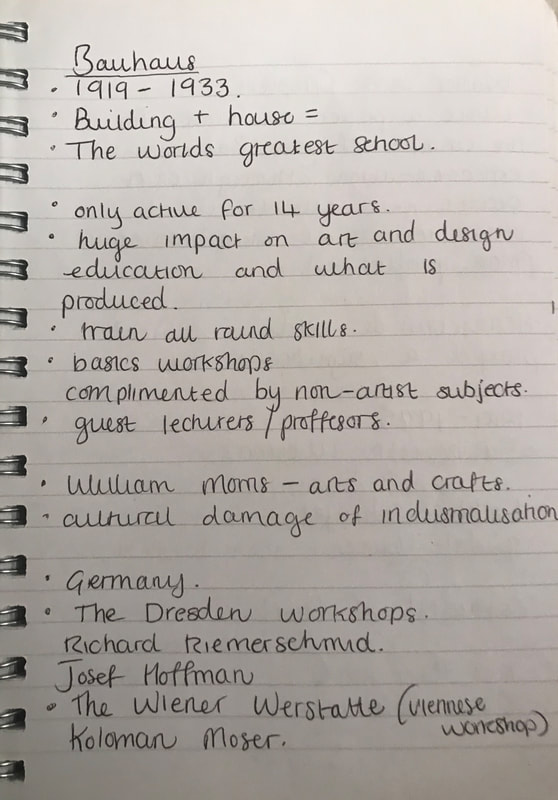 Bauhaus
• 1919 - 1933.
• Building + house =
• The worlds greatest school.
• only active for 14 years.
• huge impact on art and design
education and what is
produced.
• train all round skills.
• basics workshops
complimented by non-artist subjects.
• guest lecturers / proffesors.
• William Morris - arts and crafts.
• cultural damage of industrialisation
• Germany.
• The Dresden workshops.
Richard Riemerschmid.
Josef Hoffman
• The Wiener Werstatte (viennese
workshop)
Koloman Moser.